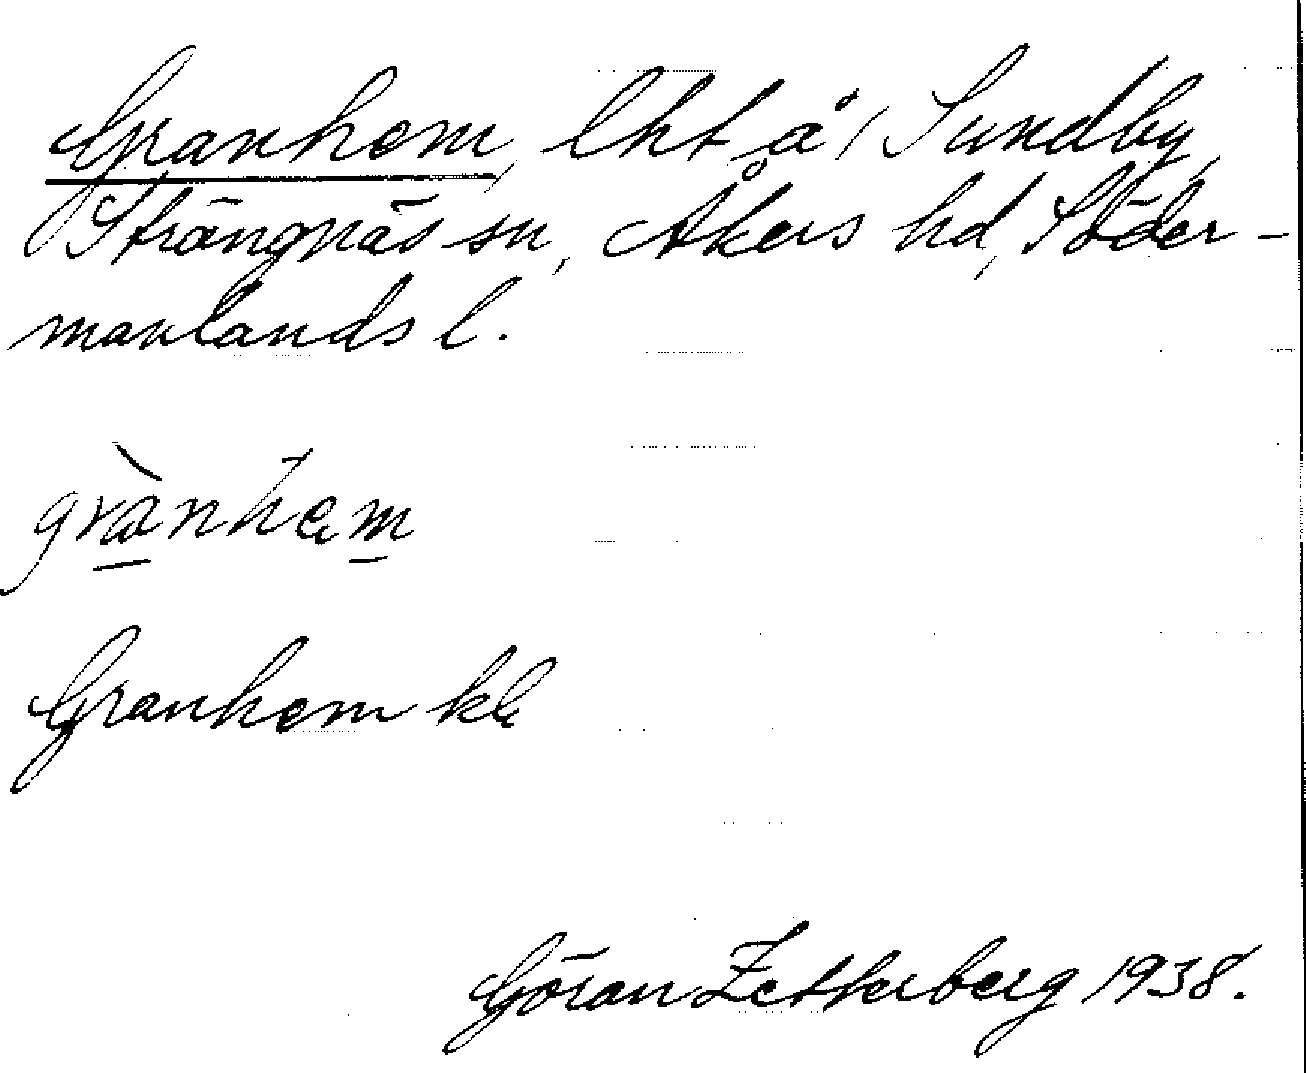 Granhem, lht å 1 Sundby,
Strängnäs sn, Åkers hd, Söder-
manlands l.
grànhem
Granhem kb
Göran Zetterberg 1938.